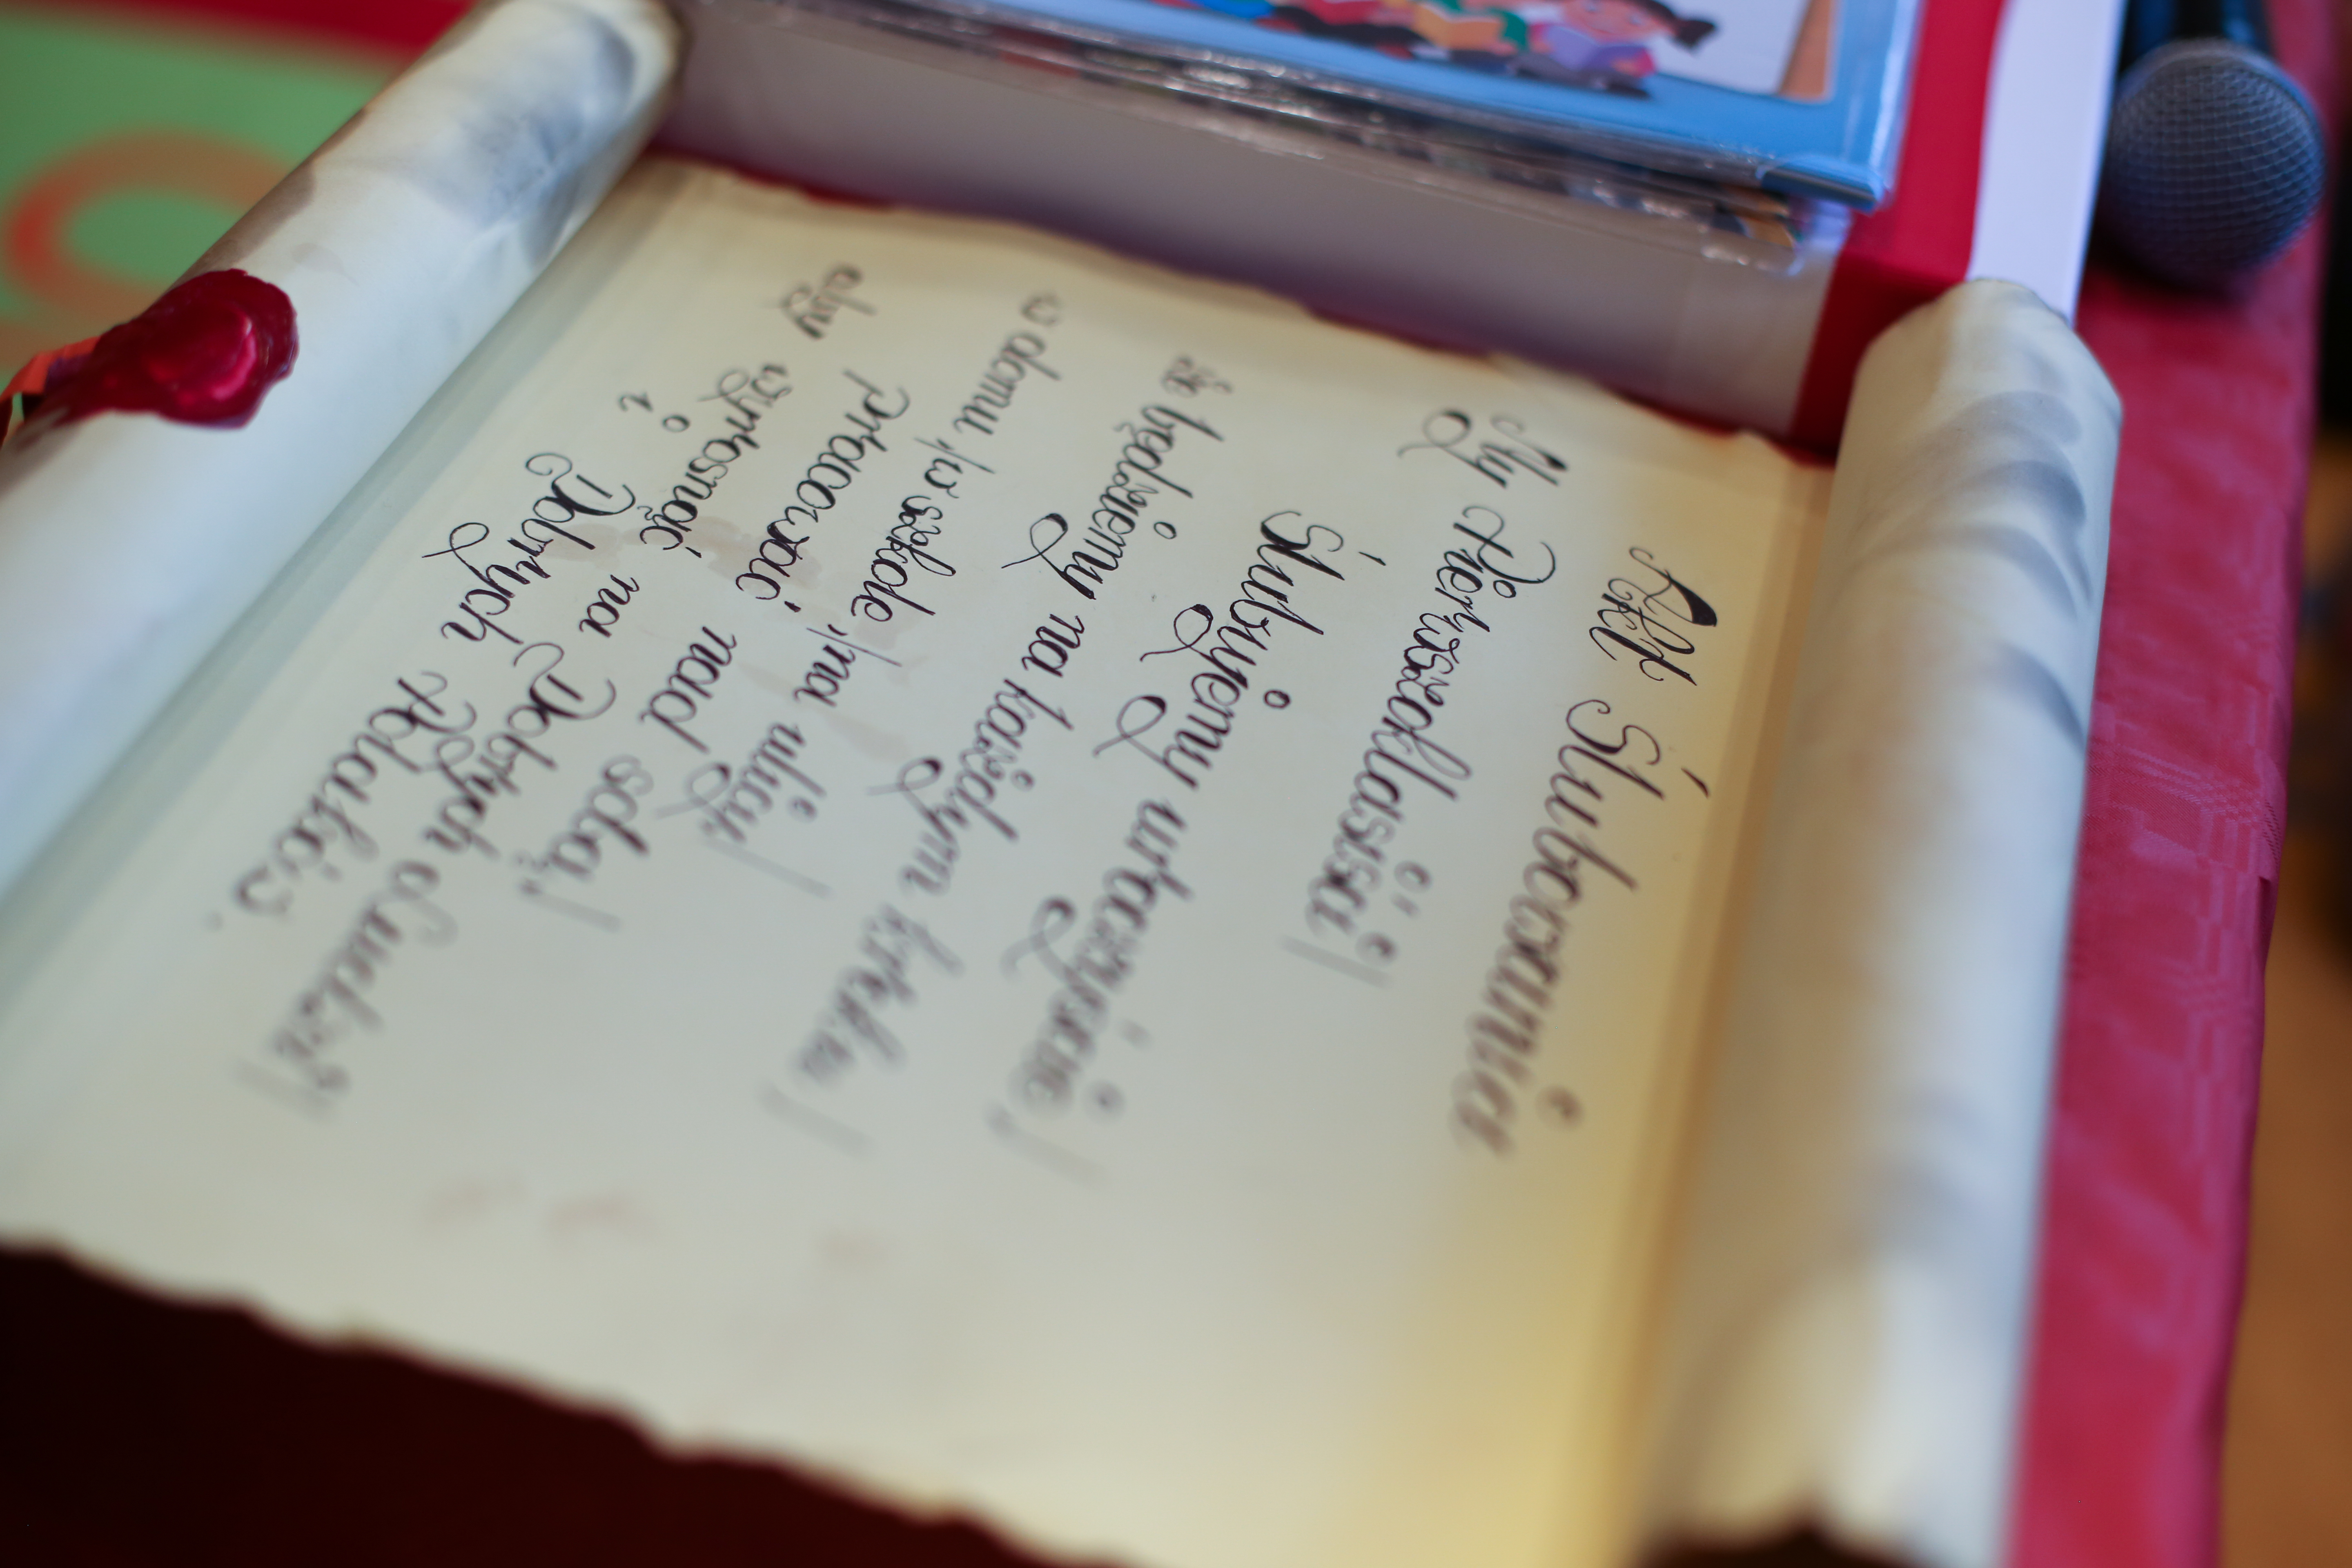 Akt Ślubowania
My Pierwszoklasiści
Ślubujemy uroczyście,
że będziemy na każdym kroku,
w domu, w szkole, na ulicy,
pracować nad sobą,
aby wyrosnąć na Dobrych Ludzi,
i Dobrych Polaków.